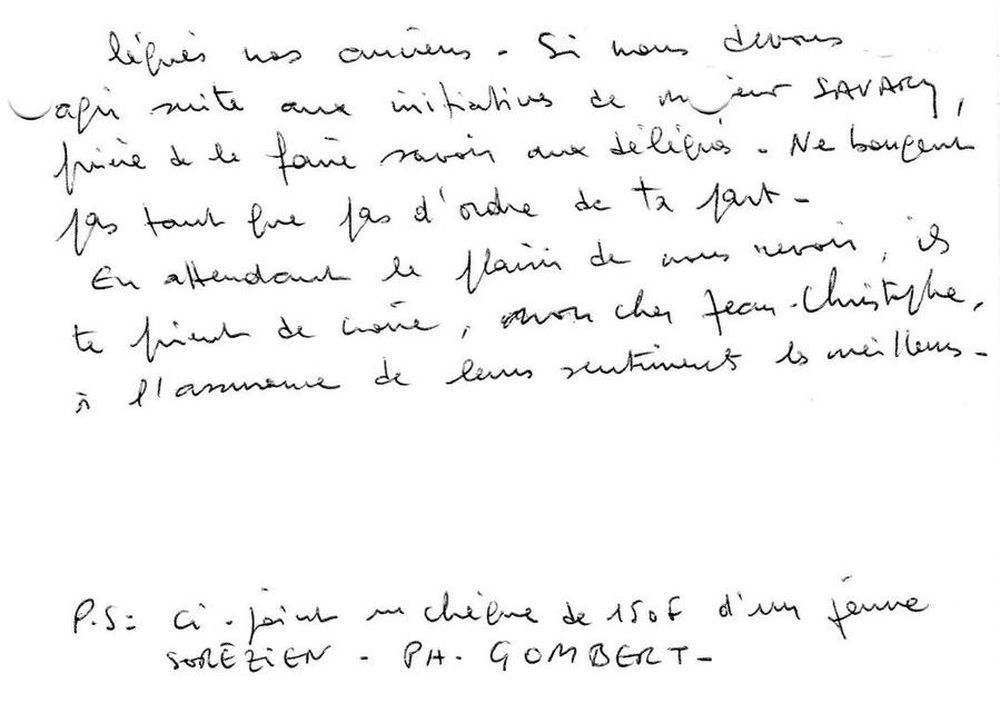 légués nos anciens - Si nous devons
agir suite aux initiatives de monsieur SAVARY,
prière de le faire savoir aux délégués - Ne bougent
pas tant que pas d'ordre de ta part -
En attendant le plaisir de nous revoir, ils
te prient de croire, mon cher Jean-Christophe,
à l'assurance de leurs sentiments les meilleurs -
P.S: Ci-joint un chèque de 150F d'un jeune
SORÉZIEN - PH. GOMBERT -